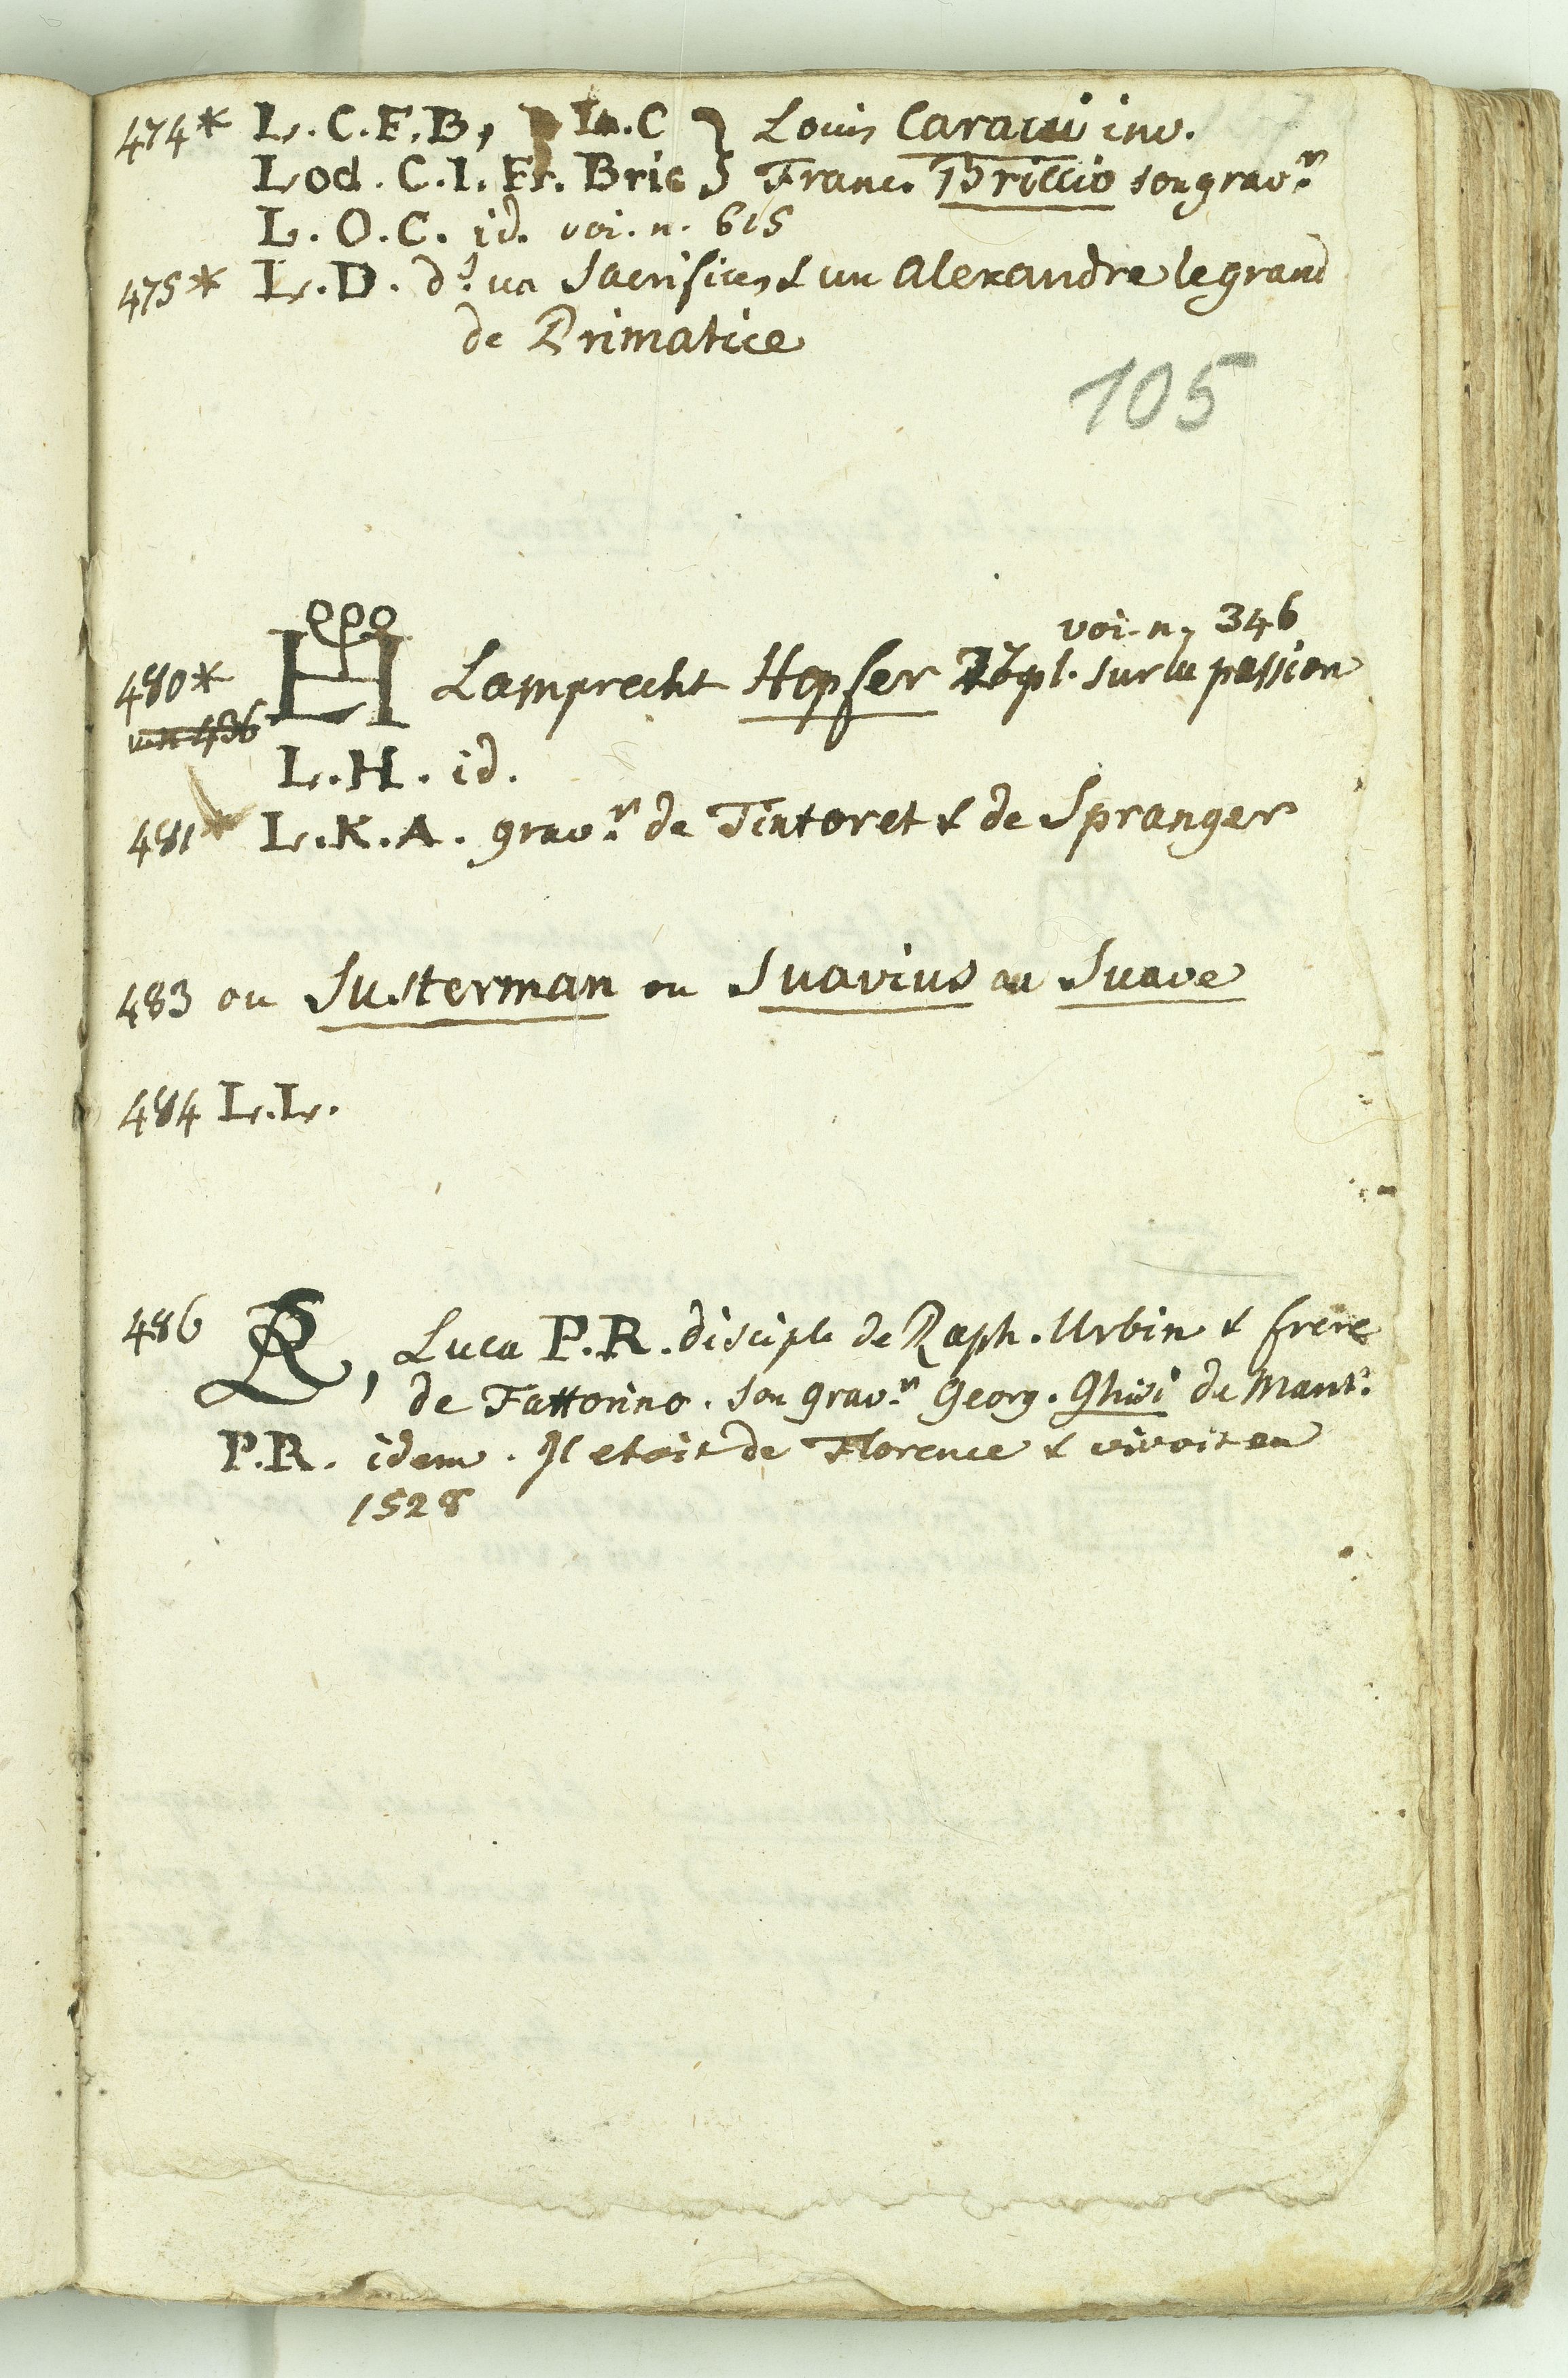 474* L. C. F. B, L. C } Louis Caracci inv.
Lod. C. I. Fr. Bric } Franc. Briccio son grav.r
L. O. C. id. voi. n. 615
475* L. D. ds un Sacrifices & un Alexandre le grand
de Primatice
105
voi. n. 346
480* LH Lamprecht Hopfer pl. sur la passion
L. H. id.
481* L. K. A. grav.r de Tintoret & de Spranger
483 ou Susterman ou Suavius ou Suave
484 L. L.
486 , Luca P. R. disciple de Raph. Urbin & frere
de Fattorino. son grav.r Georg. Ghisi de Mant.
P. R. idem. Il etoit de Florence & vivoit en
1528